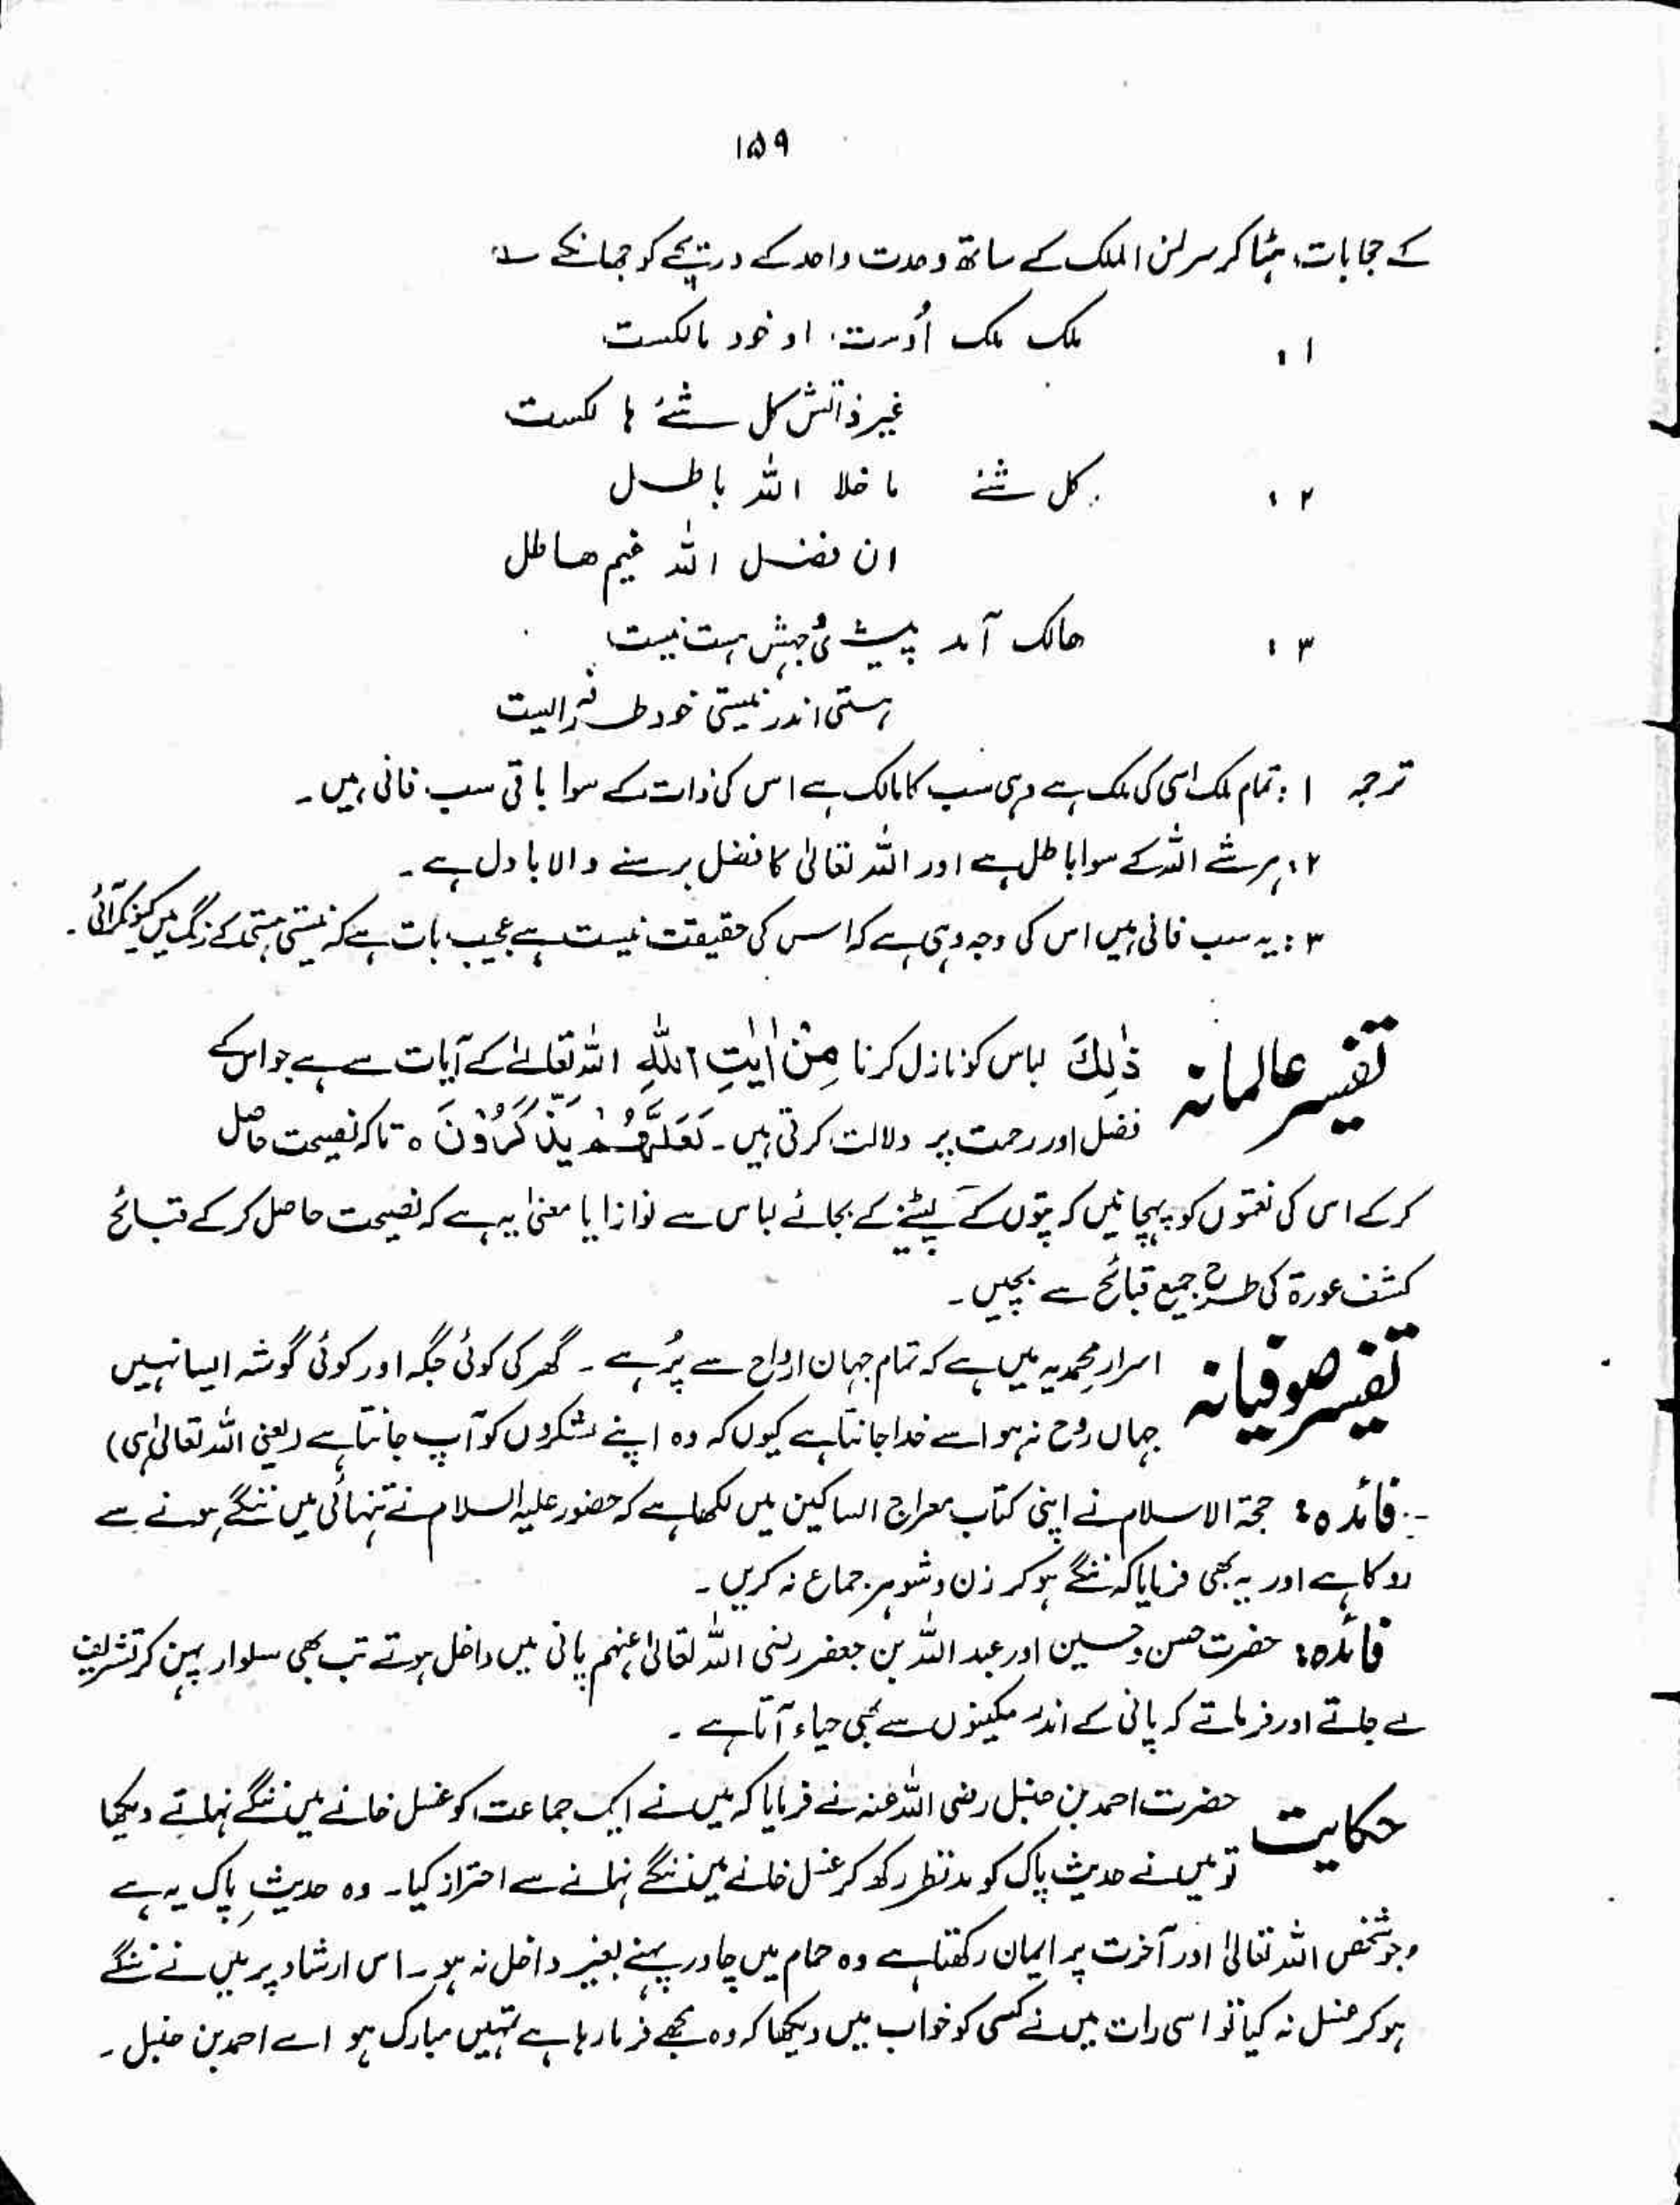 ۱۵۹
کے حجابات ہٹا کر سر لمن الملک کے ساتھ وحدت واحد کے دریچے کو جھانکے ؎
۱ : ملک ملک اُوست او خود مالکست
غیر ذاتش کل شئے ہالکست
۲ : کل شئے ما خلا اللہ باطل
ان فضل اللہ غیم ھاطل
۳ : ھالک آمد پیش وُجہش ہست نیست
ہستی اندر نیستی خود طرفہ ایست
ترجمہ ۱ : تمام ملک اسی کی ملک ہے وہی سب کا مالک ہے اس کی ذات کے سوا باقی سب فانی ہیں۔
۲ : ہر شے اللہ کے سوا باطل ہے اور اللہ تعالیٰ کا فضل برسنے والا بادل ہے۔
۳ : یہ سب فانی ہیں اس کی وجہ وہی ہے کہ اس کی حقیقت نیست ہے عجیب بات ہے کہ نیستی ہستی کے رنگ میں کیونکر آئی۔
تفسیر عالمانہ ذٰلِكَ لباس کو نازل کرنا مِنْ اٰیٰتِ اللّٰهِ اللہ تعالےٰ کے آیات سے ہے جو اس کے
فضل اور رحمت پر دلالت کرتی ہیں۔ لَعَلَّهُمْ يَذَّكَّرُوْنَ ہ تاکہ نصیحت حاصل
کر کے اس کی نعمتوں کو پہچانیں کہ پتوں کے لپٹنے کے بجائے لباس سے نوازا یا معنیٰ یہ ہے کہ نصیحت حاصل کر کے قبائح
کشف عورۃ کی طرح جمیع قبائح سے بچیں۔
تفسیر صوفیانہ اسرار محمدیہ میں ہے کہ تمام جہان ارواح سے پُر ہے ۔ گھر کی کوئی جگہ اور کوئی گوشہ ایسا نہیں
جہاں روح نہ ہو اسے خدا جانتا ہے کیوں کہ وہ اپنے لشکروں کو آپ جانتا ہے (یعنی اللہ تعالیٰ ہی)
فائدہ : حجۃ الاسلام نے اپنی کتاب معراج السالکین میں لکھا ہے کہ حضور علیہ السلام نے تنہائی میں ننگے ہونے سے
روکا ہے اور یہ بھی فرمایا کہ ننگے ہو کر زن و شوہر جماع نہ کریں۔
فائدہ : حضرت حسن و حسین اور عبد اللہ بن جعفر رضی اللہ تعالیٰ عنہم پانی میں داخل ہوتے تب بھی سلوار پہن کر تشریف
لے جاتے اور فرماتے کہ پانی کے اندر مکینوں سے بھی حیاء آتا ہے ۔
حکایت حضرت احمد بن حنبل رضی اللہ عنہ نے فرمایا کہ میں نے ایک جماعت کو غسل خانے میں ننگے نہاتے دیکھا
تو میں نے حدیث پاک کو مدنظر رکھ کر غسل خانے میں ننگے نہانے سے احتراز کیا۔ وہ حدیثِ پاک یہ ہے
جو شخص اللہ تعالیٰ اور آخرت پر ایمان رکھتا ہے وہ حمام میں چادر پہنے بغیر داخل نہ ہو۔ اس ارشاد پر میں نے ننگے
ہو کر غسل نہ کیا تو اسی رات میں نے کسی کو خواب میں دیکھا کہ وہ مجھے فرما رہا ہے تمہیں مبارک ہو اے احمد بن حنبل۔